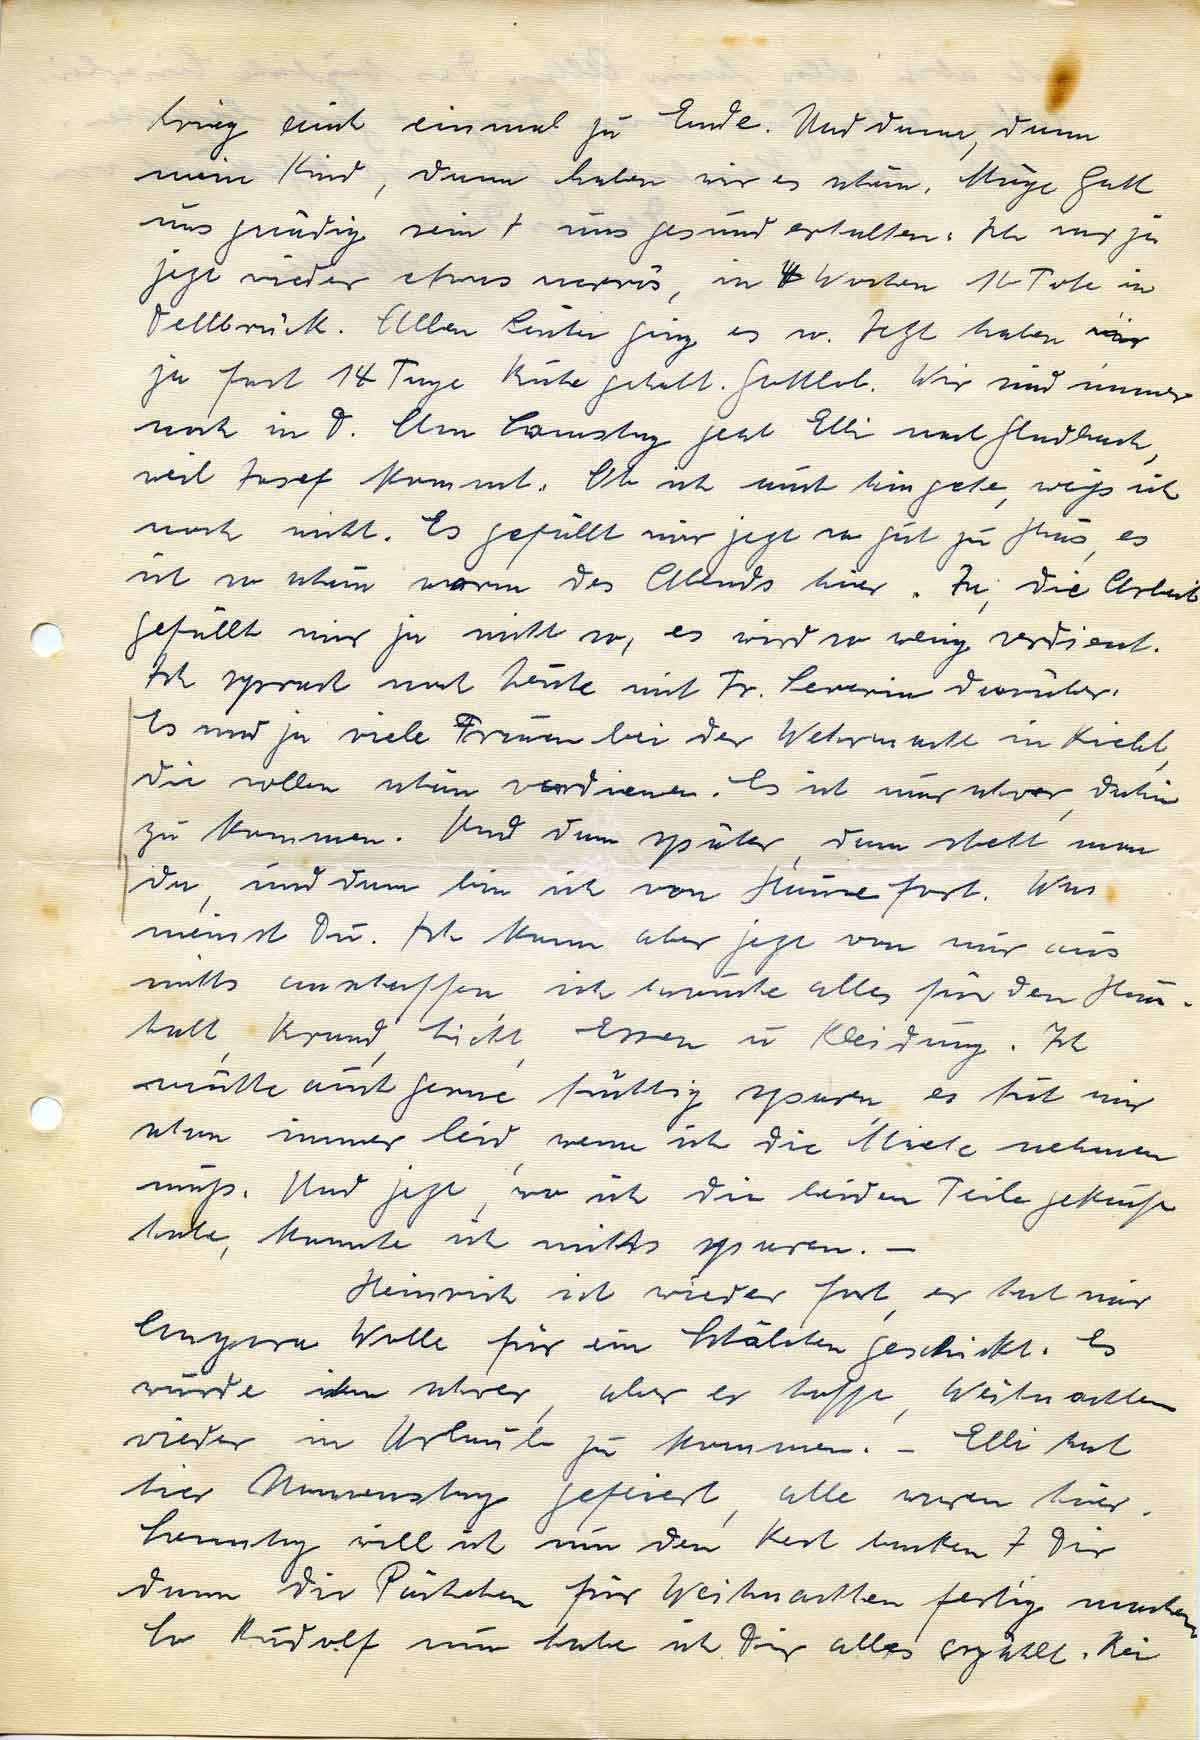 Krieg auch einmal zu Ende. Und dann, dann
mein Kind, dann haben wir es schön. Möge Gott
uns gnädig sein + uns gesund erhalten. Ich war ja
jetzt wieder etwas nervös, in 4 Wochen 16 Tote in
Dellbrück. Allen Leuten ging es so. Jetzt haben wir
ja fast 14 Tage Ruhe gehabt. Gottlob. Wir sind immer
noch in D. Am Samstag geht Elli nach Gladbach,
weil Josef kommt. Ob ich auch hingehe, weiß ich
noch nicht. Es gefällt mir jetzt so gut zu Haus, es
ist so schön warm des Abends hier. Ja, die Arbeit
gefällt mir ja nicht so, es wird so wenig verdient.
Ich sprach noch heute mit Fr. Severin darüber.
Es sind ja viele Frauen bei der Wehrmacht in Kiehl,
die sollen schön verdienen. Es ist nur schwer, dahin
zu kommen. Und dann später, dann steht man
da, und dann bin ich von Hause fort. Was
meinst Du. Ich kann aber jetzt von mir aus
nichts anschaffen, ich brauche alles für den Haus-
halt, Brand, Licht, Essen u Kleidung. Ich
möchte auch gerne tüchtig sparen, es tut mir
schon immer leid, wenn ich die Miete nehmen
muß. Und jetzt, wo ich die beiden Teile gekauft
habe, konnte ich nichts sparen. –
Heinrich ist wieder fort, er hat mir
Angora Wolle für ein Schälchen geschickt. Es
wurde ihm schwer, aber er hoffe, Weihnachten
wieder in Urlaub zu kommen. – Elli hat
hier Namenstag gefeiert, alle waren hier.
Samstag will ich nun den Kest backen + Dir
dann die Päckchen für Weihnachten fertig machen.
So Rudolf nun habe ich Dir alles erzählt. Bei